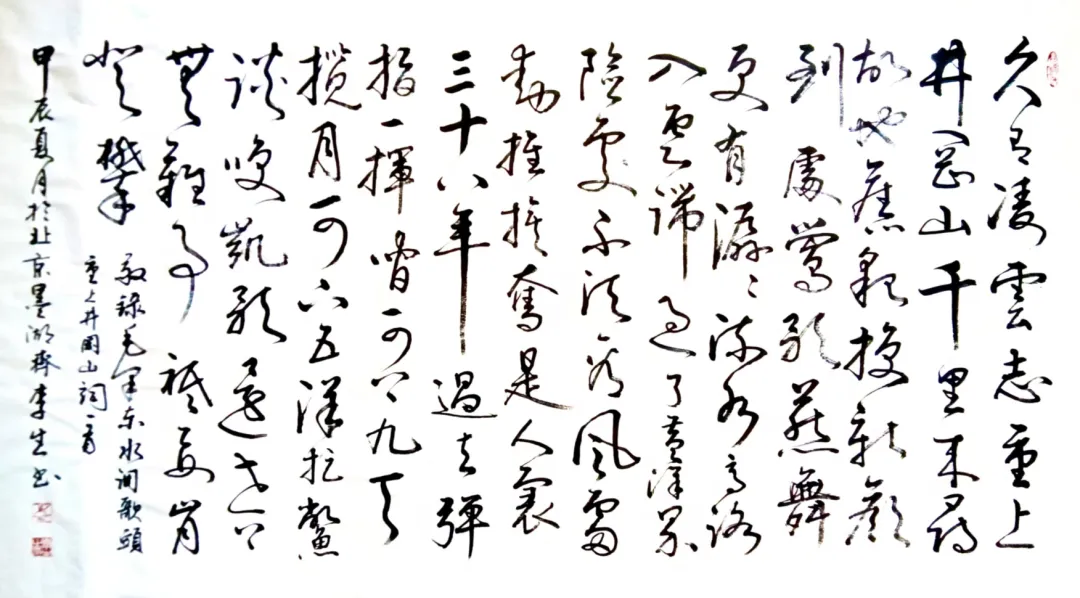 久有凌雲志重上
井岡山千里来尋
故地舊貌換新顏
到處鶯歌燕舞
更有潺々流水高路
入雲端過了黄洋界
險處不須看風雷
動旌旗奮是人寰
三十八年過去彈
指一揮間可上九天
攬月可下五洋捉鱉
談笑凱歌還世上
無難事祇要肯
登攀
敬録毛泽东水调歌頭
重上井岡山詞一首
甲辰夏月於北京墨湖齋李生书